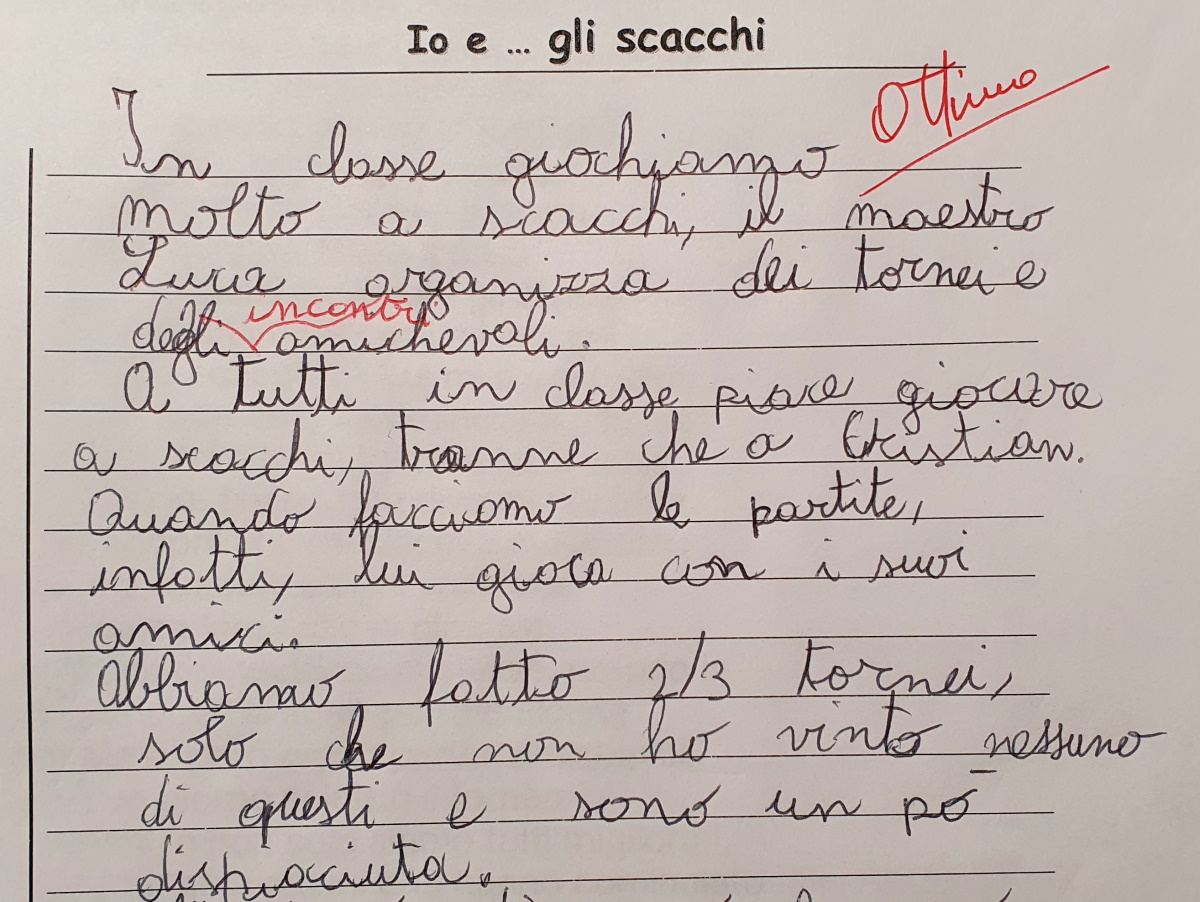 Io e ... gli scacchi
Ottimo
In classe giochiamo
molto a scacchi, il maestro
Luca organizza dei tornei e
incontri
degli amichevoli.
A tutti in classe piace giocare
a scacchi, tranne che a Cristian.
Quando facciamo le partite,
infatti, lui gioca con i suoi
amici.
Abbiamo fatto 2/3 tornei,
solo che non ho vinto nessuno
di questi e sono un pò
dispiaciuta.